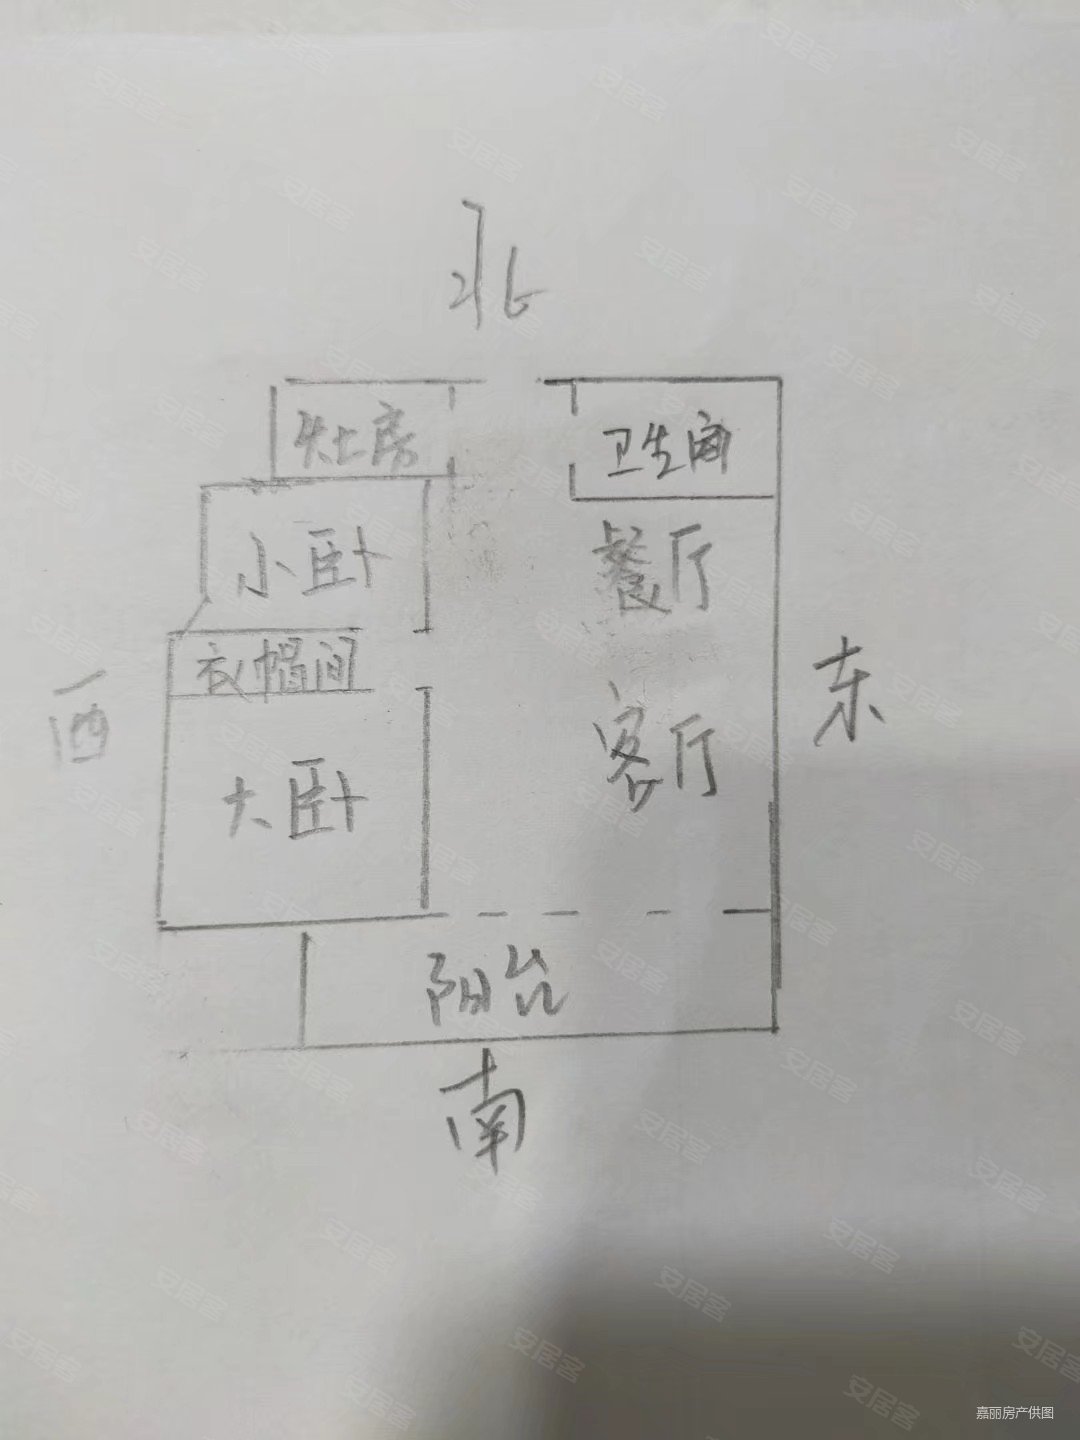 北
灶房
卫生间
小卧
餐厅
衣帽间
西
东
客厅
大卧
阳台
南
安居客
嘉丽房产供图